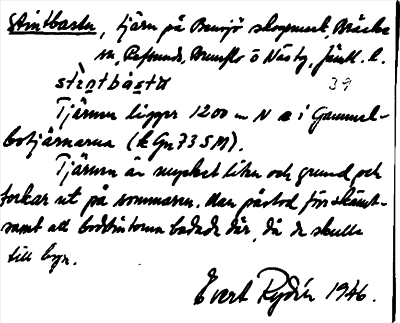 Stintbasta, tjärn på Bensjö skogsmark, Bräcke
sn, Refsunds, Brunflo o Näs tg, Jämtl. l.
stèntbàsta 39
Tjärnen ligger 1200 m N a i Gammel-
botjärnarna (k Gn 73 SM).
Tjärnen är mycket liten och grund och
torkar ut på sommaren. Man påstod för skämt-
samt att bodstintorna badade där, då de skulle
till byn.
Evert Rydén 1946.